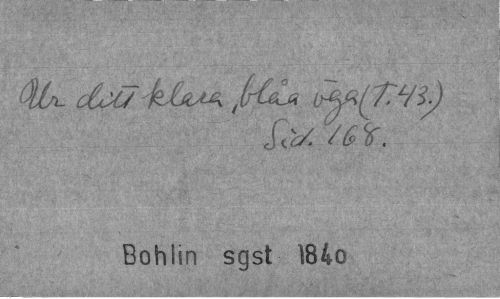 Ur ditt klara, blåa öga (T.43.)
Sid. 168.
Bohlin sgst 1840